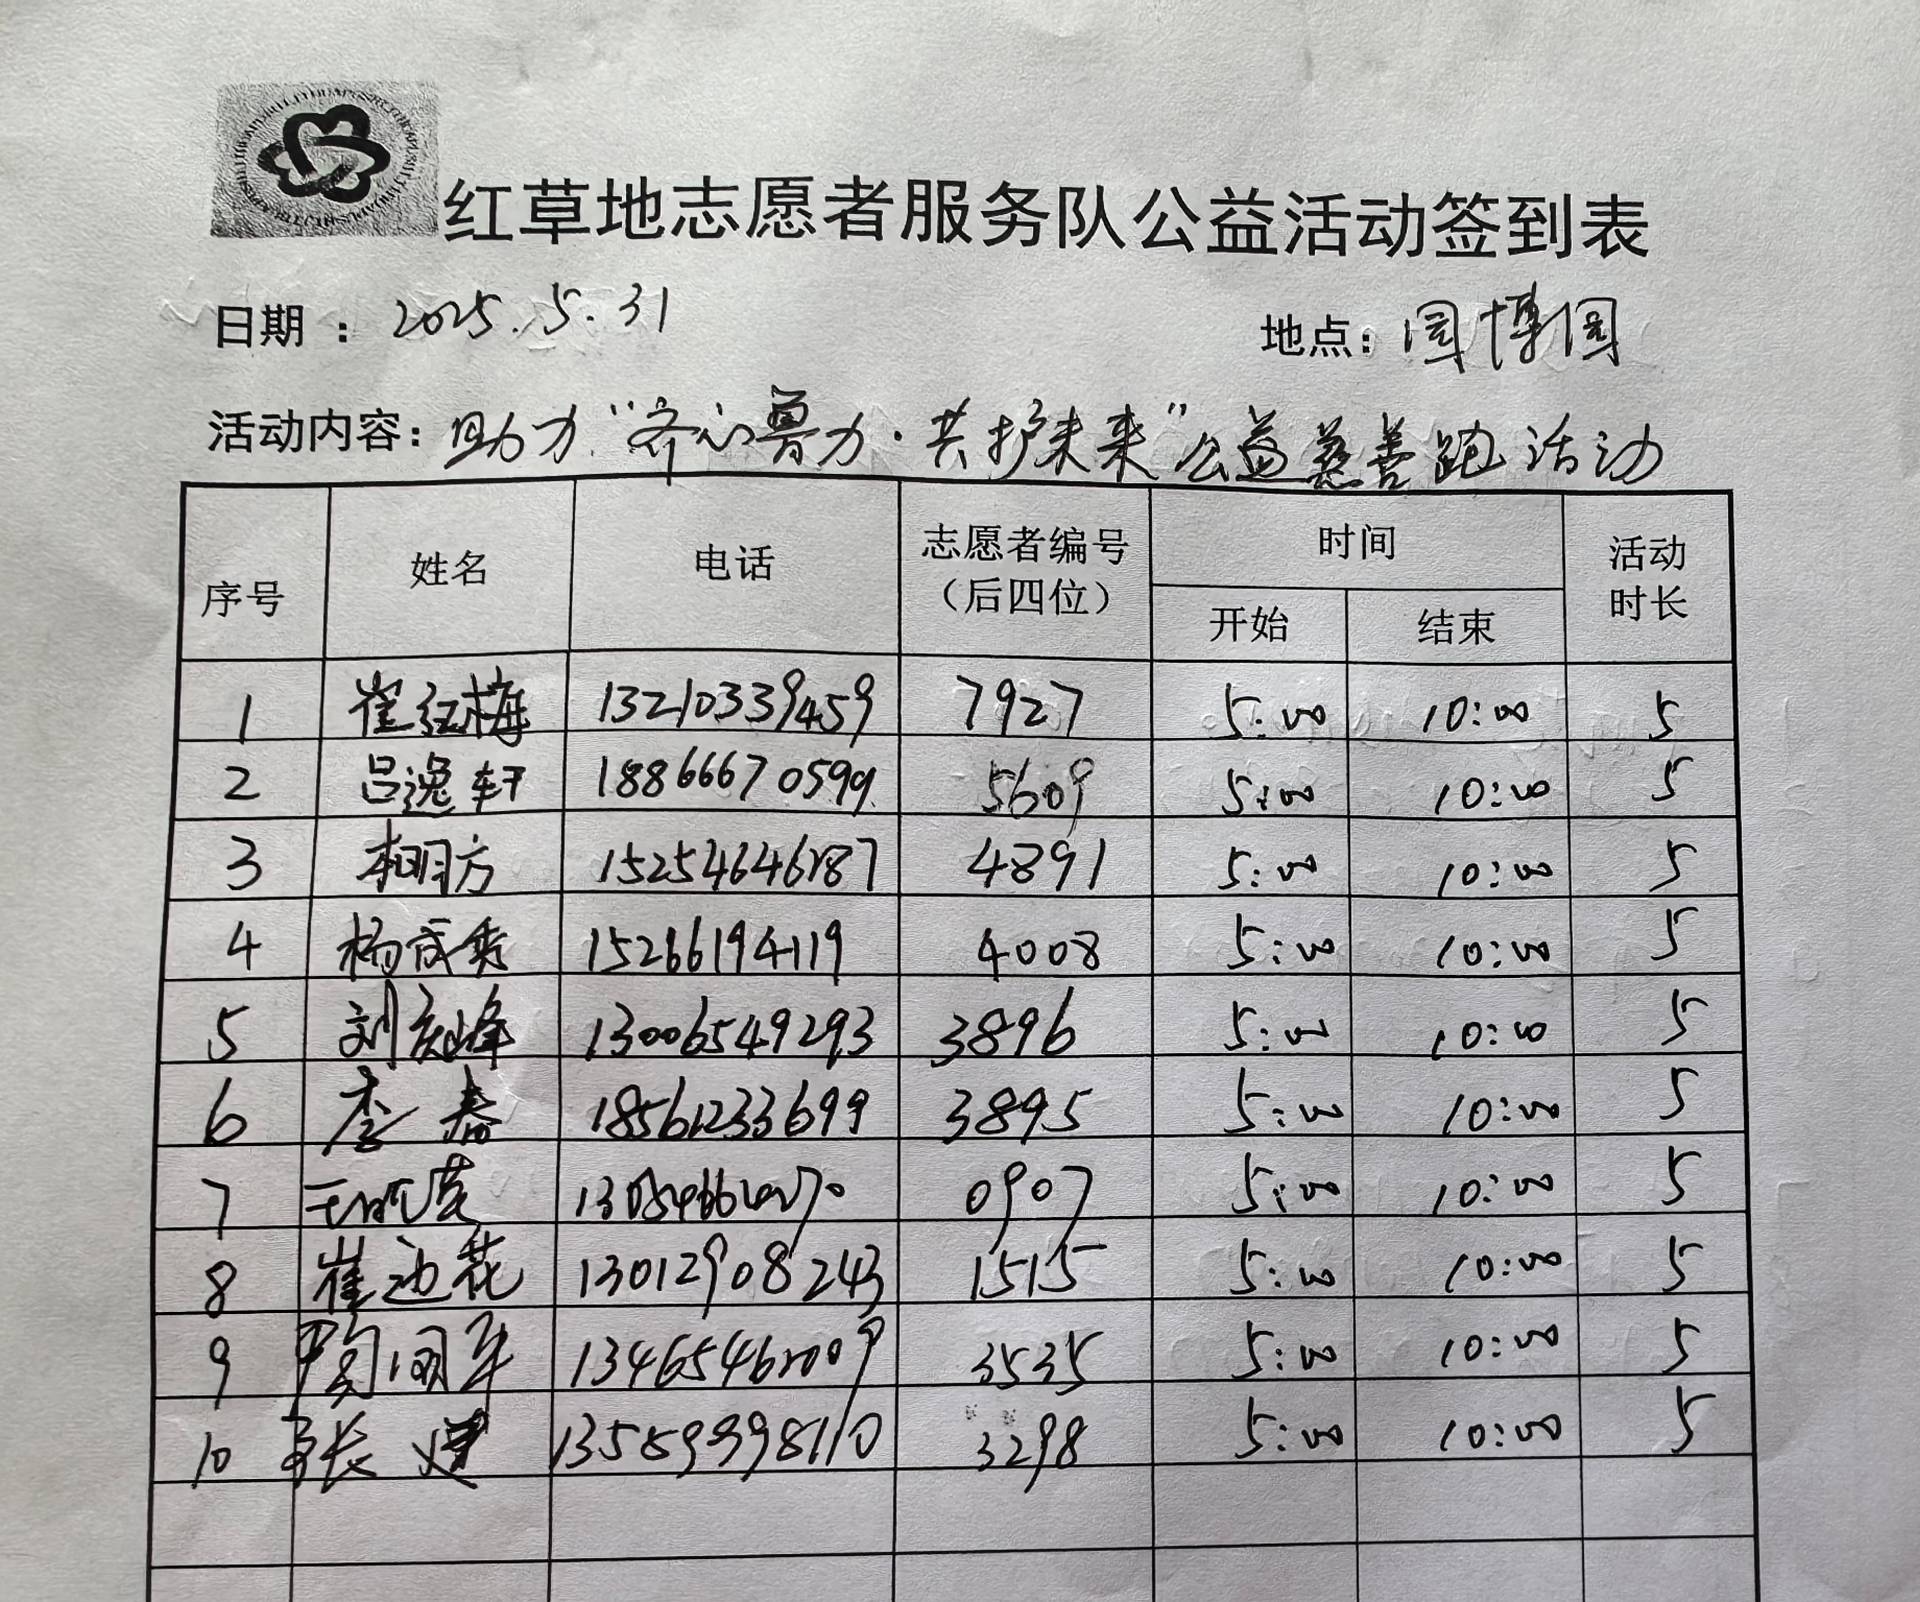 红草地志愿者服务队公益活动签到表
日期 : 2025.5.31 地点: 园博园
活动内容: 助力“齐心鲁力·共护未来”公益慈善跑活动
序号 姓名 电话 志愿者编号(后四位) 时间 活动时长
开始 结束
1 崔红梅 13210339459 7927 5:00 10:00 5
2 吕逸轩 18866670599 5609 5:00 10:00 5
3 方 15254646187 4891 5:00 10:00 5
4 杨成秀 15266194119 4008 5:00 10:00 5
5 刘峰 13006549293 3896 5:00 10:00 5
6 李春 18561233699 3895 5:00 10:00 5
7 0907 5:00 10:00 5
8 崔迎花 13012908243 1515 5:00 10:00 5
9 3535 5:00 10:00 5
10 张建 13589998110 3298 5:00 10:00 5